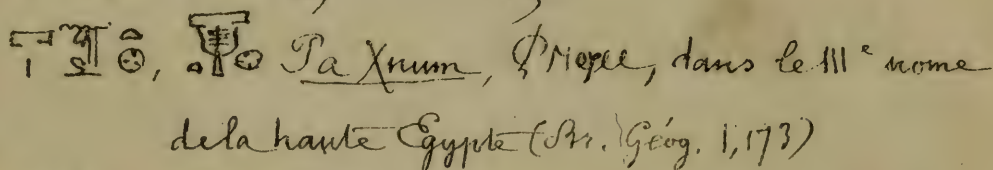 Pa Xnum, dans le IIIe nome
de la haute Égypte (Br. Géog. I, 173)